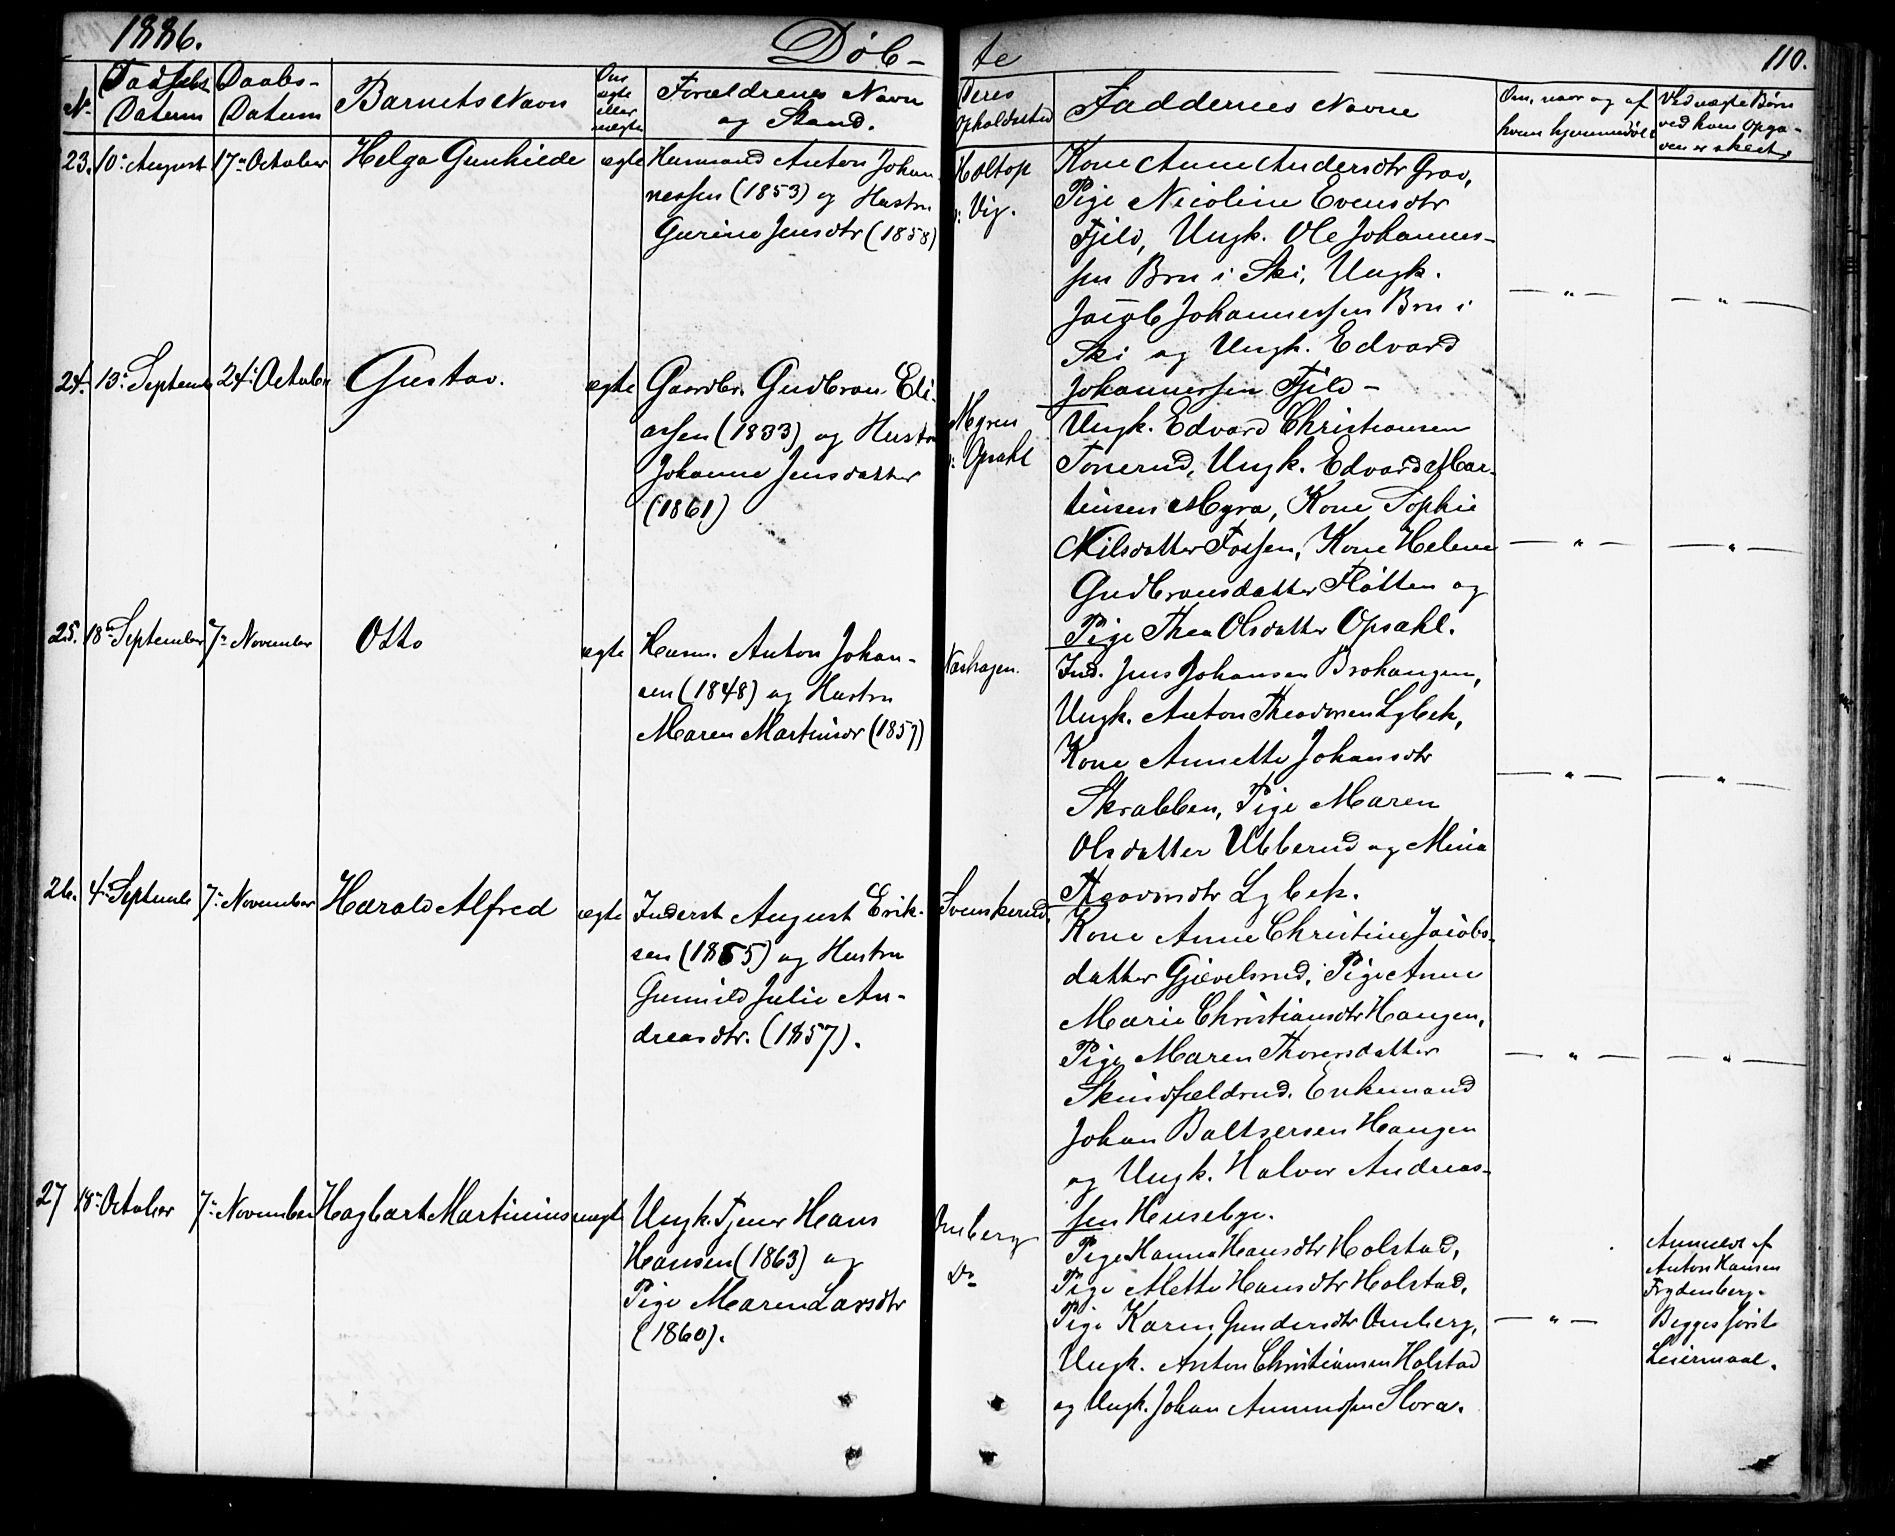 1886.
Døb-
te
110.
No.
Fødsels
Datum
Daabs-
Datum
Barnets Navn
Om
ægte
eller
uægte
Forældrenes Navn
og Stand.
Deres
Opholdssted
Faddernes Navne
Om, naar og af
hvem hjemmedøbt
Ved uægte Børn
ved hvem Opga-
ven er skeet.
23. 10de August 17de October Helga Gunhilde ægte
Husmand Anton Johan-
nessen (1853) og Hustru
Gurine Jensdtr (1858)
Holtop
u: Vig.
Kone Anne Andersdtr Grav,
Pige Nicoline Evensdtr
Fjeld, Ungk. Ole Johannes-
sen Bru i Ski, Ungk.
Jacob Johannessen Bru i
Ski og Ungk. Edvard
Johannessen Fjeld -
— " —
— " —
24. 13de Septemb 24de October Gustav. ægte
Gaardbr. Gudbran Eli-
assen (1833) og Hustru
Johanne Jensdatter
(1861)
Myren
u: Opsahl
Ungk. Edvard Christiansen
Tonerud, Ungk. Edvard Mar-
tinsen Myra, Kone Sophie
Nilsdatter Fossen, Kone Helene
Gudbransdatter Fløtten og
Pige Thea Olsdatter Opsahl.
— " —
— " —
25. 18de September 7de November Otto ægte
Husm. Anton Johan-
sen (1848) og Hustru
Maren Martinsdr (1857)
Inds. Jens Johansen Brohaugen,
Ungk. Anton Theodorsen Lybek,
Kone Annette Johansdtr
Skrabben, Pige Maren
Olsdatter Ubberud og Mina
Theodorsdtr Lybek.
— " —
— " —
26. 4de Septemb 7de November Harald Alfred ægte
Inderst August Erik-
sen (1855) og Hustru
Gunild Julie An-
dreasdtr. (1857).
Svenskerud.
Kone Anne Christine Jacobs-
datter Gjevelsrud, Pige Anne
Marie Christiansdtr Haugen,
Pige Maren Thorersdatter
Skindfældrud. Enkemand
Johan Baltsersen Haugen
og Ungk. Halvor Andreas-
sen Huseby.
— " —
— " —
27 18de October 7de November Hagbart Martinius uægte
Ungk. Tjener Hans
Hansen (1863) og
Pige Maren Larsdtr
(1860).
Omberg
Do
Pige Hanna Hansdtr Holstad,
Pige Mette Hansdtr Holstad,
Pige Karen Gundersdtr Omberg,
Ungk. Anton Christiansen Holstad
og Ungk. Johan Amundsen Slora.
— " —
Anmeldt af
Anton Hansen
Frydenberg.
Begges første
Leiermaal.